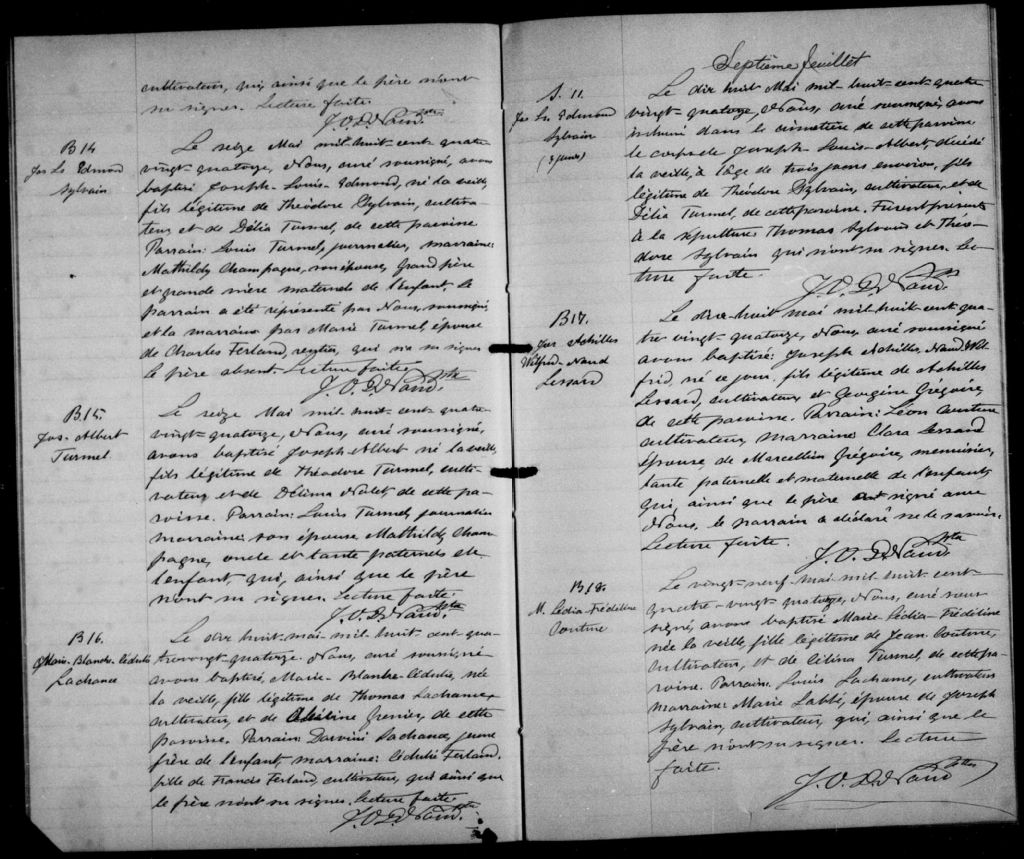 cultivateur, qui, ainsi que le père n'ont
su signer. Lecture faite.
J. O. D. Naud. Ptre
B 14
Jos Ls Edmond
Sylvain
Le seize Mai mil huit cent quatre
vingt-quatorze, Nous, curé soussigné, avons
baptisé Joseph-Louis-Edmond, né la veille,
fils légitime de Théodore Sylvain, cultiva-
teur, et de Délia Turmel, de cette paroisse
Parrain: Louis Turmel, journalier, marraine:
Mathilde Champagne, son épouse, grand père
et grande mère maternels de l'enfant. Le
parrain a été représenté par Nous, soussigné,
et la marraine par Marie Turmel, épouse
de Charles Ferland, rentier, qui n'a su signer
le père absent. Lecture faite.
J. O. D. Naud. Ptre
B.15.
Jos- Albert
Turmel
Le seize Mai mil huit cent quatre-
vingt-quatorze, Nous, curé soussigné,
avons baptisé Joseph-Albert né la veille,
fils légitime de Théodore Turmel, culti-
vateur, et de Délima Nolet, de cette pa-
roisse. Parrain: Louis Turmel, journalier
marraine: son épouse Mathilde Cham-
pagne, oncle et tante paternels de
l'enfant, qui, ainsi que le père
n'ont su signer. Lecture faite.
J. O. D. Naud. Ptre
B16.
Marie-Blanche-Cédulie
Lachance
Le dix huit mai mil huit cent qua-
tre vingt-quatorze. Nous, curé soussigné
avons baptisé, Marie-Blanche-Cédulie, née
la veille, fille légitime de Thomas Lachance,
cultivateur, et de Grenier, de cette
paroisse. Parrain: Lachance, jeune
frère de l'enfant, marraine: Cédulie Ferland,
fille de Francis Ferland, cultivateur, qui ainsi que
le père n'ont su signer. Lecture faite.
J. O. D. Naud. Ptre
Septième feuillet
S. 11.
Jos Ls Edmond
Sylvain
(3 jours)
Le dix huit Mai mil huit cent quatre
vingt-quatorze, Nous, curé soussigné, avons
inhumé dans le cimetière de cette paroisse
le corps de Joseph-Louis-Albert, décédé
la veille, à l'âge de trois jours environ, fils
légitime de Théodore Sylvain, cultivateur, et de
Délia Turmel, de cette paroisse. Furent présents
à la sépulture Thomas Sylvain et Théo-
dore Sylvain qui n'ont su signer. Lec-
ture faite.
J. O. D. Naud. Ptre
B17.
Jos Achilles
Wilfrid-Naud
Lessard
Le dix-huit mai mil-huit-cent qua-
tre vingt-quatorze, Nous, curé soussigné
avons baptisé: Joseph Achilles, Naud, Wil-
frid, né ce jour, fils légitime de Achilles
Lessard, cultivateur, et Georgine Grégoire,
de cette paroisse. Parrain: Léon Couture
cultivateur, marraine: Clara Lessard
épouse de Marcellin Grégoire, menuisier,
tante paternelle et maternelle de l'enfant,
qui, ainsi que le père ont signé avec
Nous, le parrain a déclaré ne le savoir.
Lecture faite.
J. O. D. Naud. Ptre
B 18.
M. Lédia-Frédéline
Couture
Le vingt-neuf-mai-mil-huit cent-
quatre-vingt quatorze, Nous, curé sous-
signé, avons baptisé Marie-Lédia-Frédéline
née la veille, fille légitime de Jean Couture,
cultivateur, et de Célina Turmel, de cette pa-
roisse. Parrain: Louis Lachance, cultivateur
marraine: Marie Labbé, épouse de Joseph
Sylvain, cultivateur, qui, ainsi que le
père n'ont su signer. Lecture
faite.
J. O. D. Naud Ptre